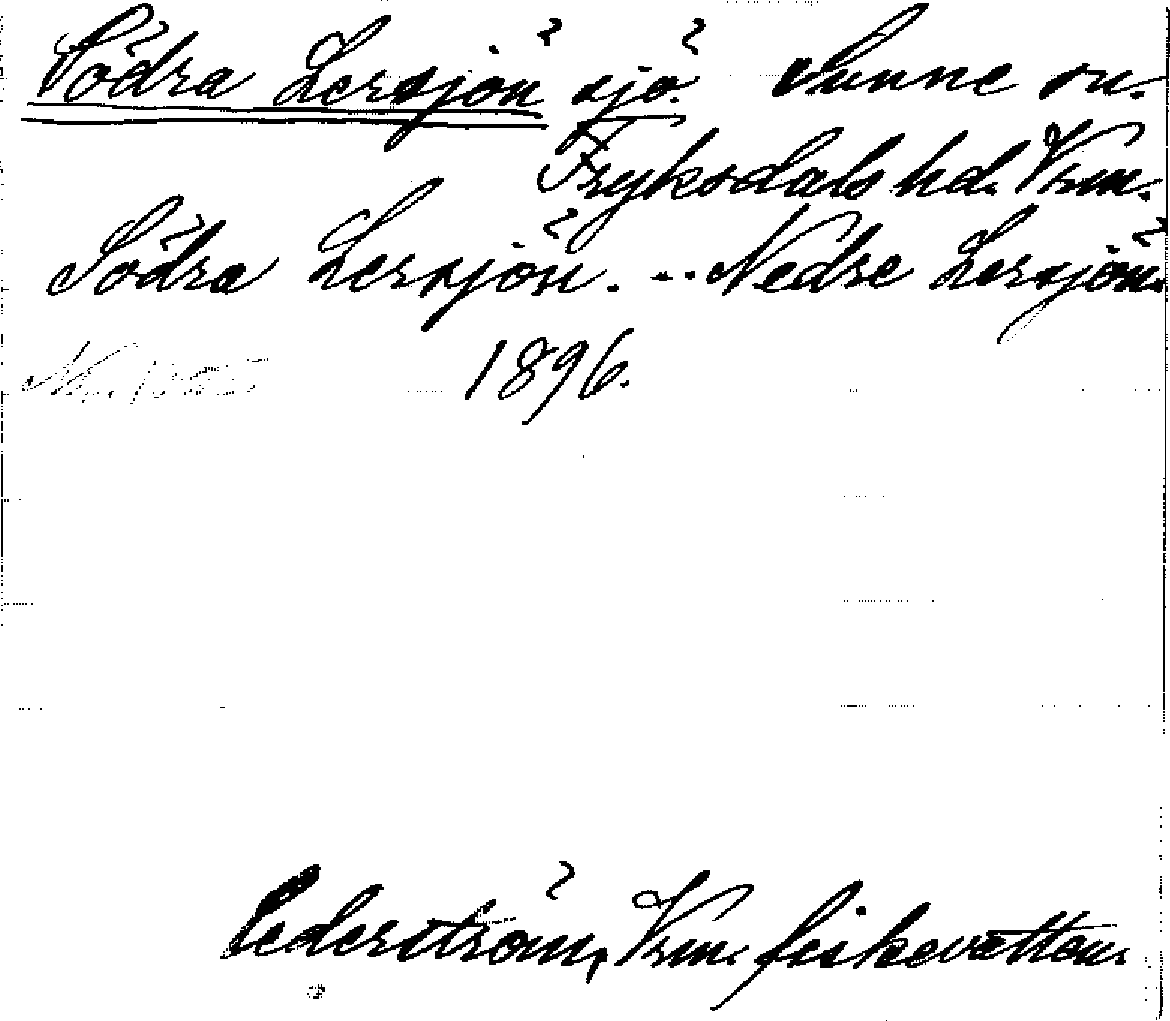 Södra Lersjön sjö. Sunne sn.
Fryksdals hd. Vrm.
Södra Lersjön. -- Nedre Lersjön.
1896.
Cederström, Vrm. fiskevatten.